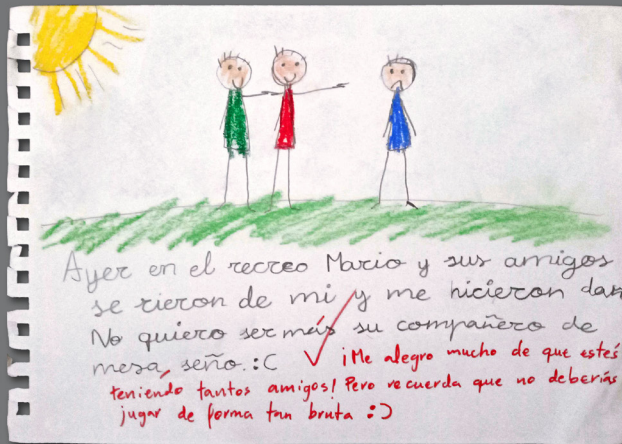 Ayer en el recreo Mario y sus amigos
se rieron de mi y me hicieron
No quiero ser más su compañero de
mesa, seño. :C
¡Me alegro mucho de que estés
teniendo tantos amigos! Pero recuerda que no deberías
jugar de forma tan bruta :)